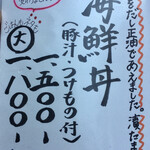 をだし正油であえました。漬だま
海鮮丼
(豚汁・つけもの付)
一、五〇〇ー
大 一、八〇〇ー